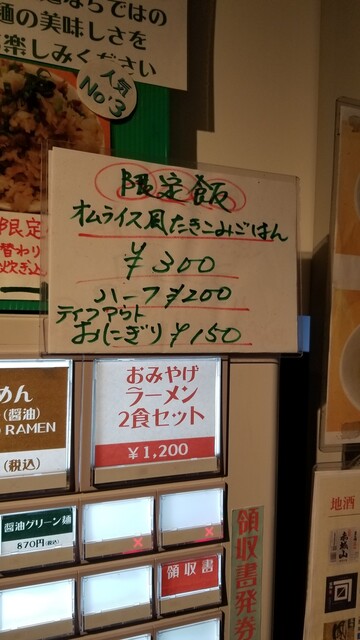 ならではの
麺の美味しさを
楽しみください
人気
No.3
限定飯
オムライス風たきこみごはん
¥300
ハーフ¥200
テイクアウト
おにぎり¥150
限定
替わり
炊き込
めん
(醤油)
RAMEN
(税込)
おみやげ
ラーメン
2食セット
¥1,200
醤油グリーン麺
870円(税込)
領収書
領収書発券
地酒
赤城山